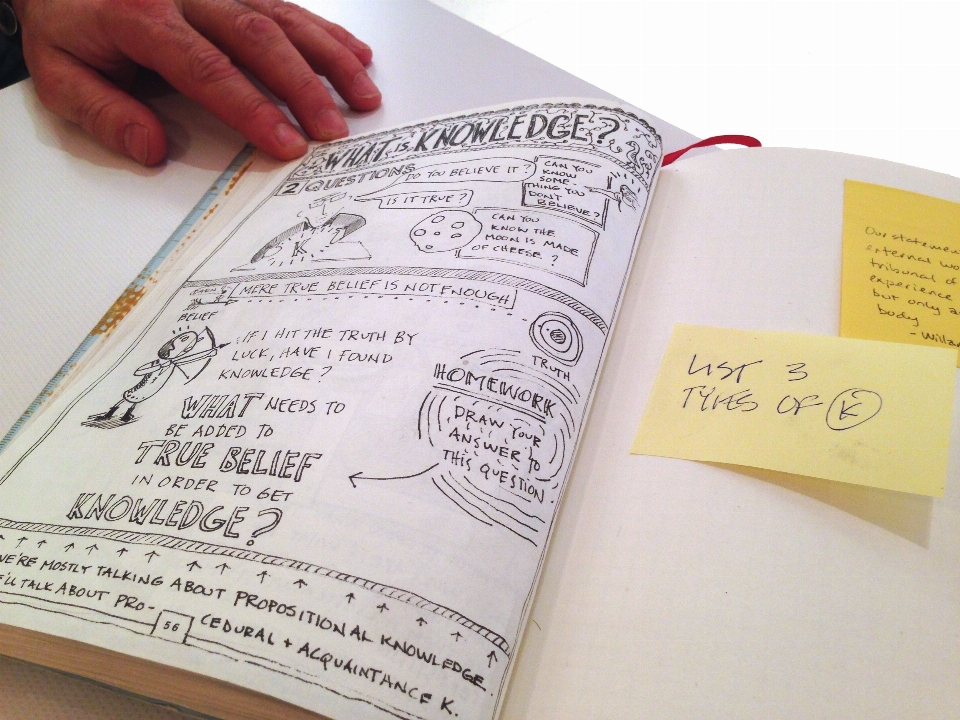 WHAT IS KNOWLEDGE?
2 QUESTIONS
DO YOU BELIEVE IT?
IS IT TRUE?
CAN YOU
KNOW
SOME-
THING YOU
DON'T
BELIEVE?
K
CAN YOU
KNOW THE
MOON IS MADE
OF CHEESE?
MERE TRUE BELIEF IS NOT ENOUGH
BELIEF
TRUTH
IF I HIT THE TRUTH BY
LUCK, HAVE I FOUND
KNOWLEDGE?
WHAT NEEDS TO
BE ADDED TO
TRUE BELIEF
IN ORDER TO GET
KNOWLEDGE?
HOMEWORK
DRAW YOUR
ANSWER TO
THIS QUESTION
WE'RE MOSTLY TALKING ABOUT PROPOSITIONAL KNOWLEDGE.
TALK ABOUT PRO-
56
CEDURAL + ACQUAINTANCE K.
LIST 3
TYPES OF K
Our statemen
external wo
tribunal of
experience
but only a
body
- Willar